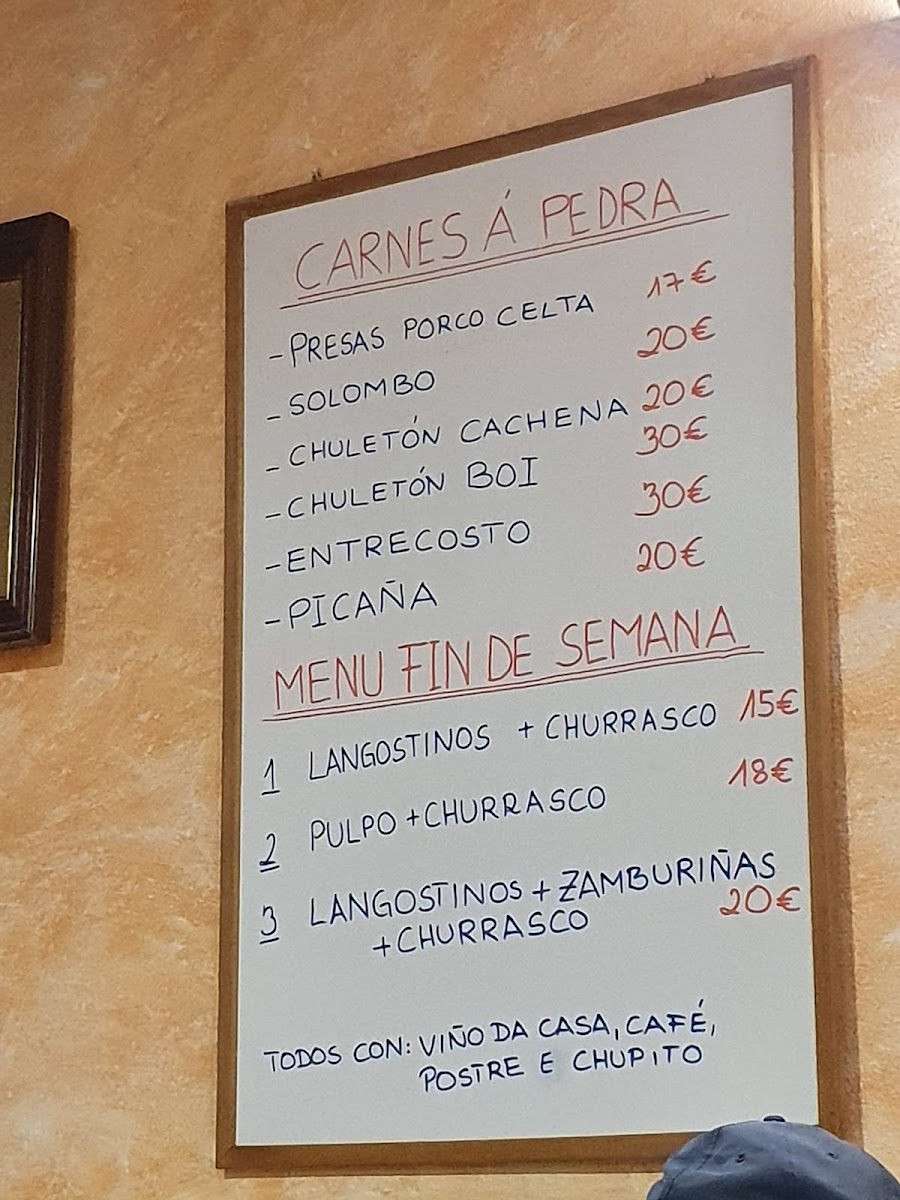 CARNES Á PEDRA
- PRESAS PORCO CELTA 17€
- SOLOMBO 20€
- CHULETÓN CACHENA 20€
- CHULETÓN BOI 30€
- ENTRECOSTO 30€
- PICAÑA 20€
MENU FIN DE SEMANA
1 LANGOSTINOS + CHURRASCO 15€
2 PULPO + CHURRASCO 18€
3 LANGOSTINOS + ZAMBURIÑAS
+ CHURRASCO 20€
TODOS CON: VIÑO DA CASA, CAFÉ,
POSTRE E CHUPITO